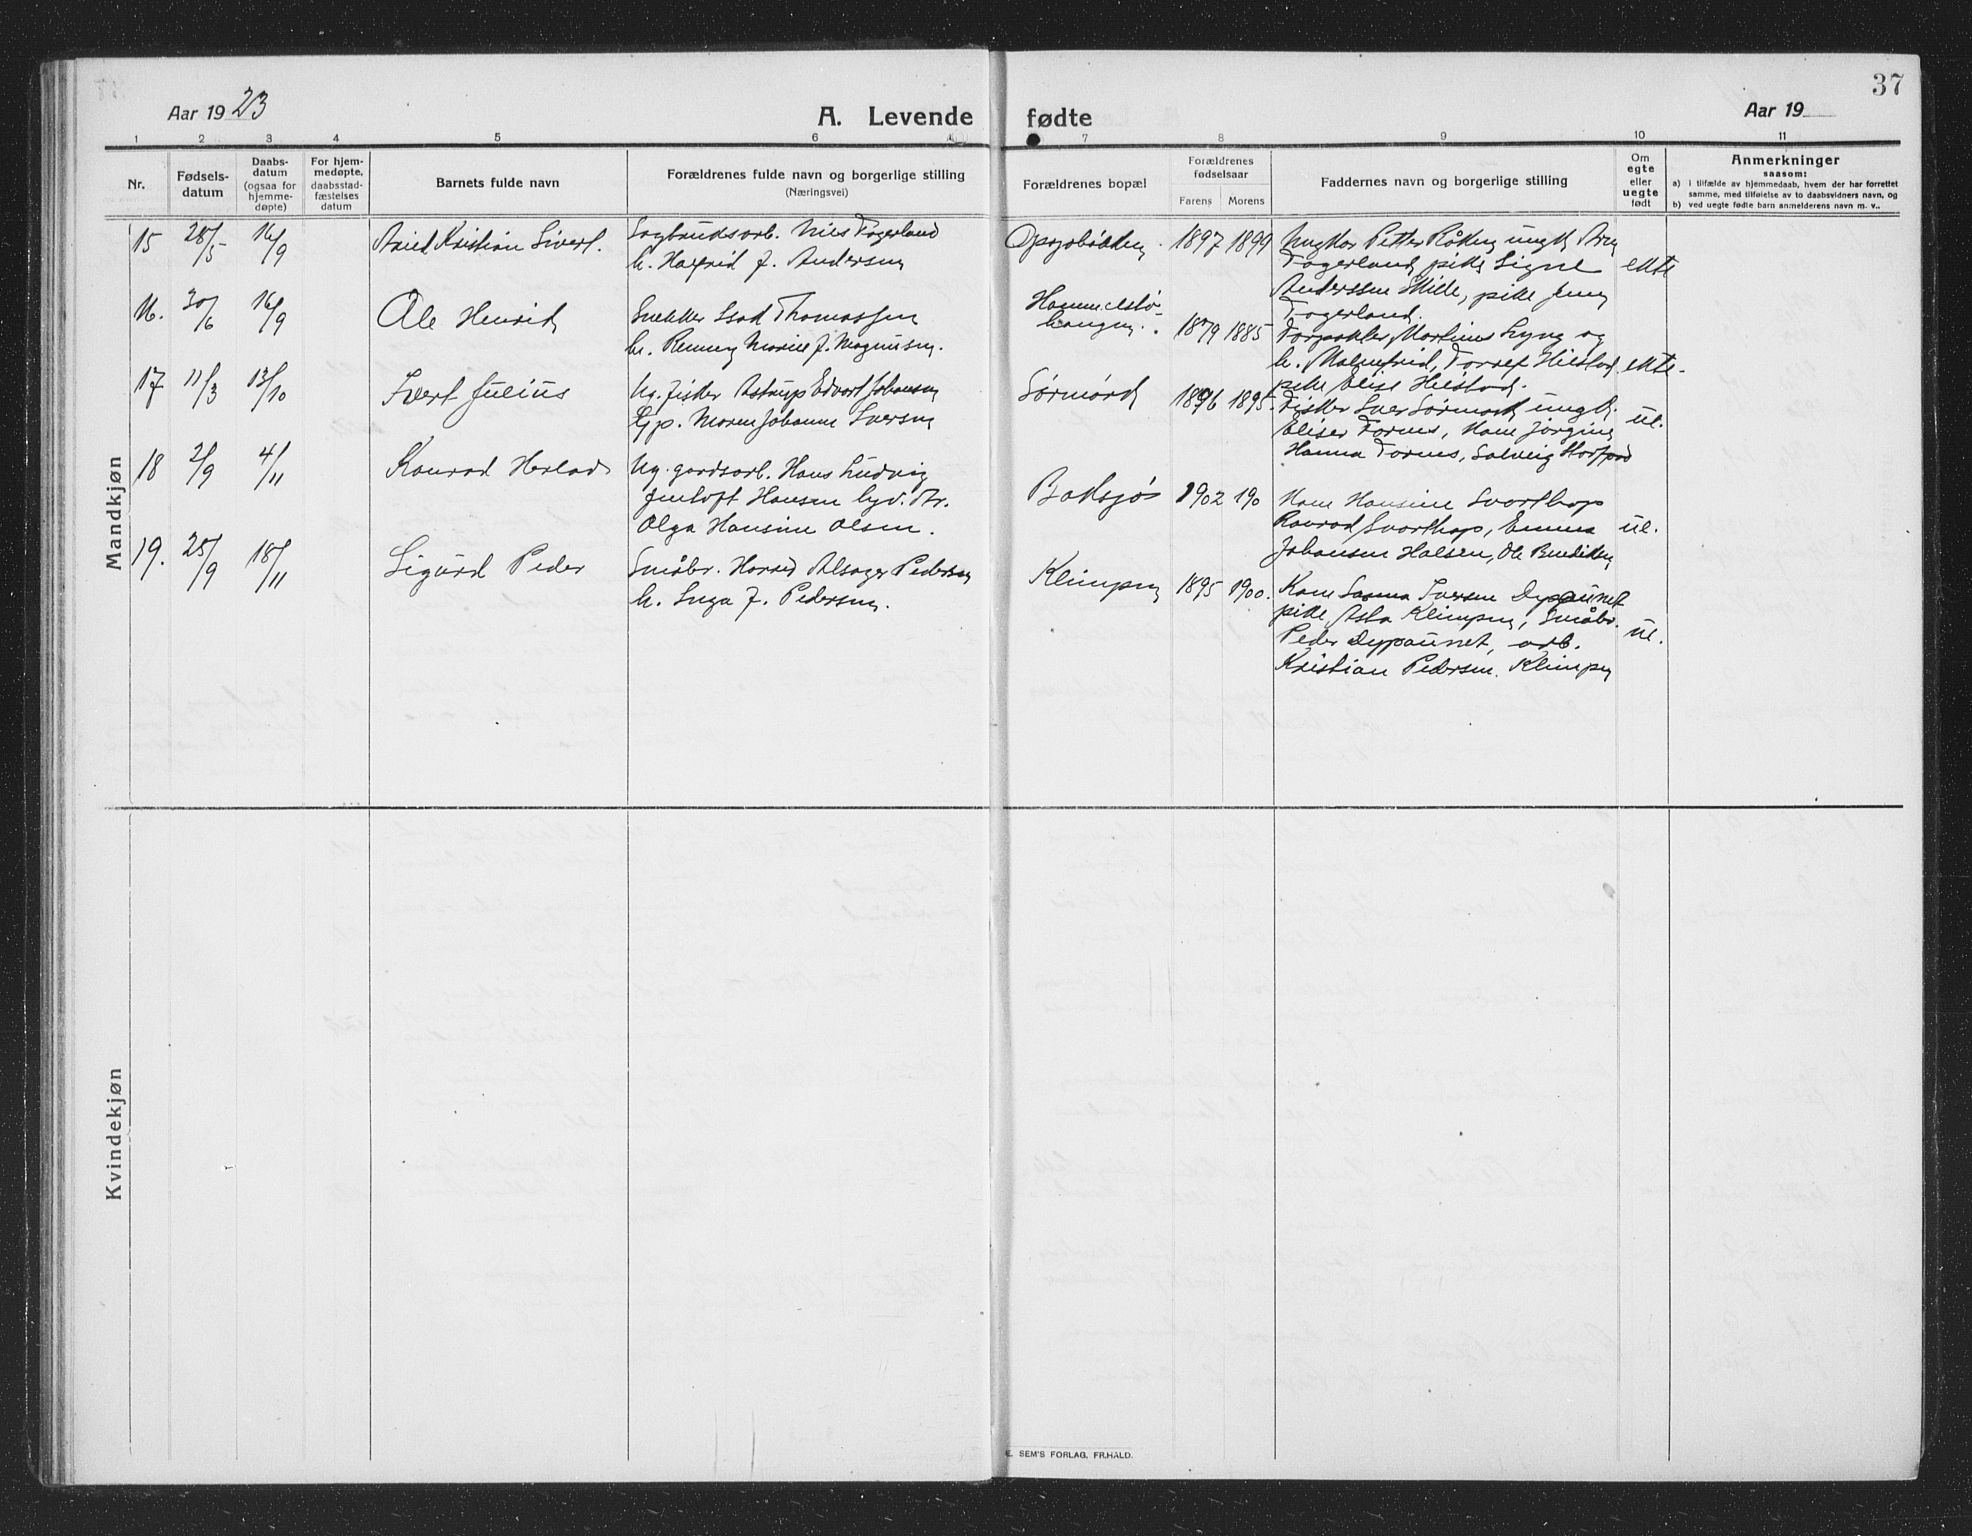 37
Aar 1923
A. Levende fødte
Aar 19
1 2 3 4 5 6 7 8 9 10 11
Nr.
Fødsels-
datum
Daabs-
datum
(ogsaa for
hjemme-
døpte)
For hjem-
medøpte,
daabsstad-
fæstelses
datum
Barnets fulde navn
Forældrenes fulde navn og borgerlige stilling
(Næringsvei)
Forældrenes bopæl
Forældrenes
fødselsaar
Farens Morens
Faddernes navn og borgerlige stilling
Om
egte
eller
uegte
født
Anmerkninger
saasom:
a) i tilfælde av hjemmedaab, hvem der har forrettet
samme, med tilføielse av to daabsvidners navn, og
b) ved uegte fødte barn anmelderens navn m. v..
Mandkjøn
15 28/5 16/9 Kristian Sivert.
Sagbruksarb. Nils Fagerland
h. f. Andersen
1897 1899
Petter ungk.
Fagerland, pike Signe
Anderssen pike Jenny
Fagerland.
ekte
16. 30/6 16/9 Ole Henrik
Snekker Thomassen
h. f. Magnusen.
1879 1885
Martinus Lyng og
h. Malmfrid, Hilstad
pike Elise Hilstad.
ekte.
17 11/3 13/10 Ivert Julius
Ug. fisker Astrup Edvart Johansen
Gp. Maren Johanne Iversen
Sørmørd 1896 1895.
Fisker Iver Sørmørd, ungk.
Eliser Fornes, Kone Jørgine
Hanna Fornes, Solveig
ul.
18 2/9 4/11 Konrad
Ug. gardsarb. Hans Ludvig
Jentoft Hansen
Olga Hansine Olsen.
1902 190
Kone Hansine Svarthop
Konrad Svarthop, Emma
Johansen Halsen, Ole Benediktsen
ul.
19. 25/9 18/11 Sigurd Peder
Småbr. Harald Alsager Pedersen
h. Inga f. Pedersen.
Klimpen 1895 1900.
Kone Iversen Dypaunet
pike Asta Klimpen, Småbr.
Peder Dypaunet, arb.
Kristian Pedersen. Klimpen
ul.
Kvindekjøn
E. SEM'S FORLAG, FR.HALD.